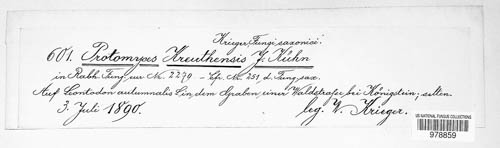 Krieger, Fungi saxonici.
601. Protomyces Kreuthensis J. Kühn
in Rabh. Fung. eur. No. 2270 – Cfr. No. 251, d. Fung. sax.
Auf Leontodon autumnalis L. in dem Graben einer Waldstrasse bei Königstein; selten
3. Juli 1890. leg. W. Krieger.
US NATIONAL FUNGUS COLLECTIONS
978859